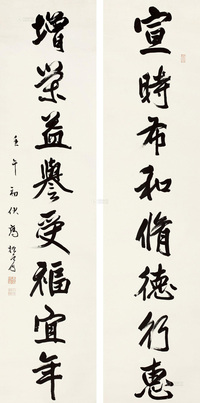 宣時布和脩德行惠
增榮益譽受福宜年
壬午初伏